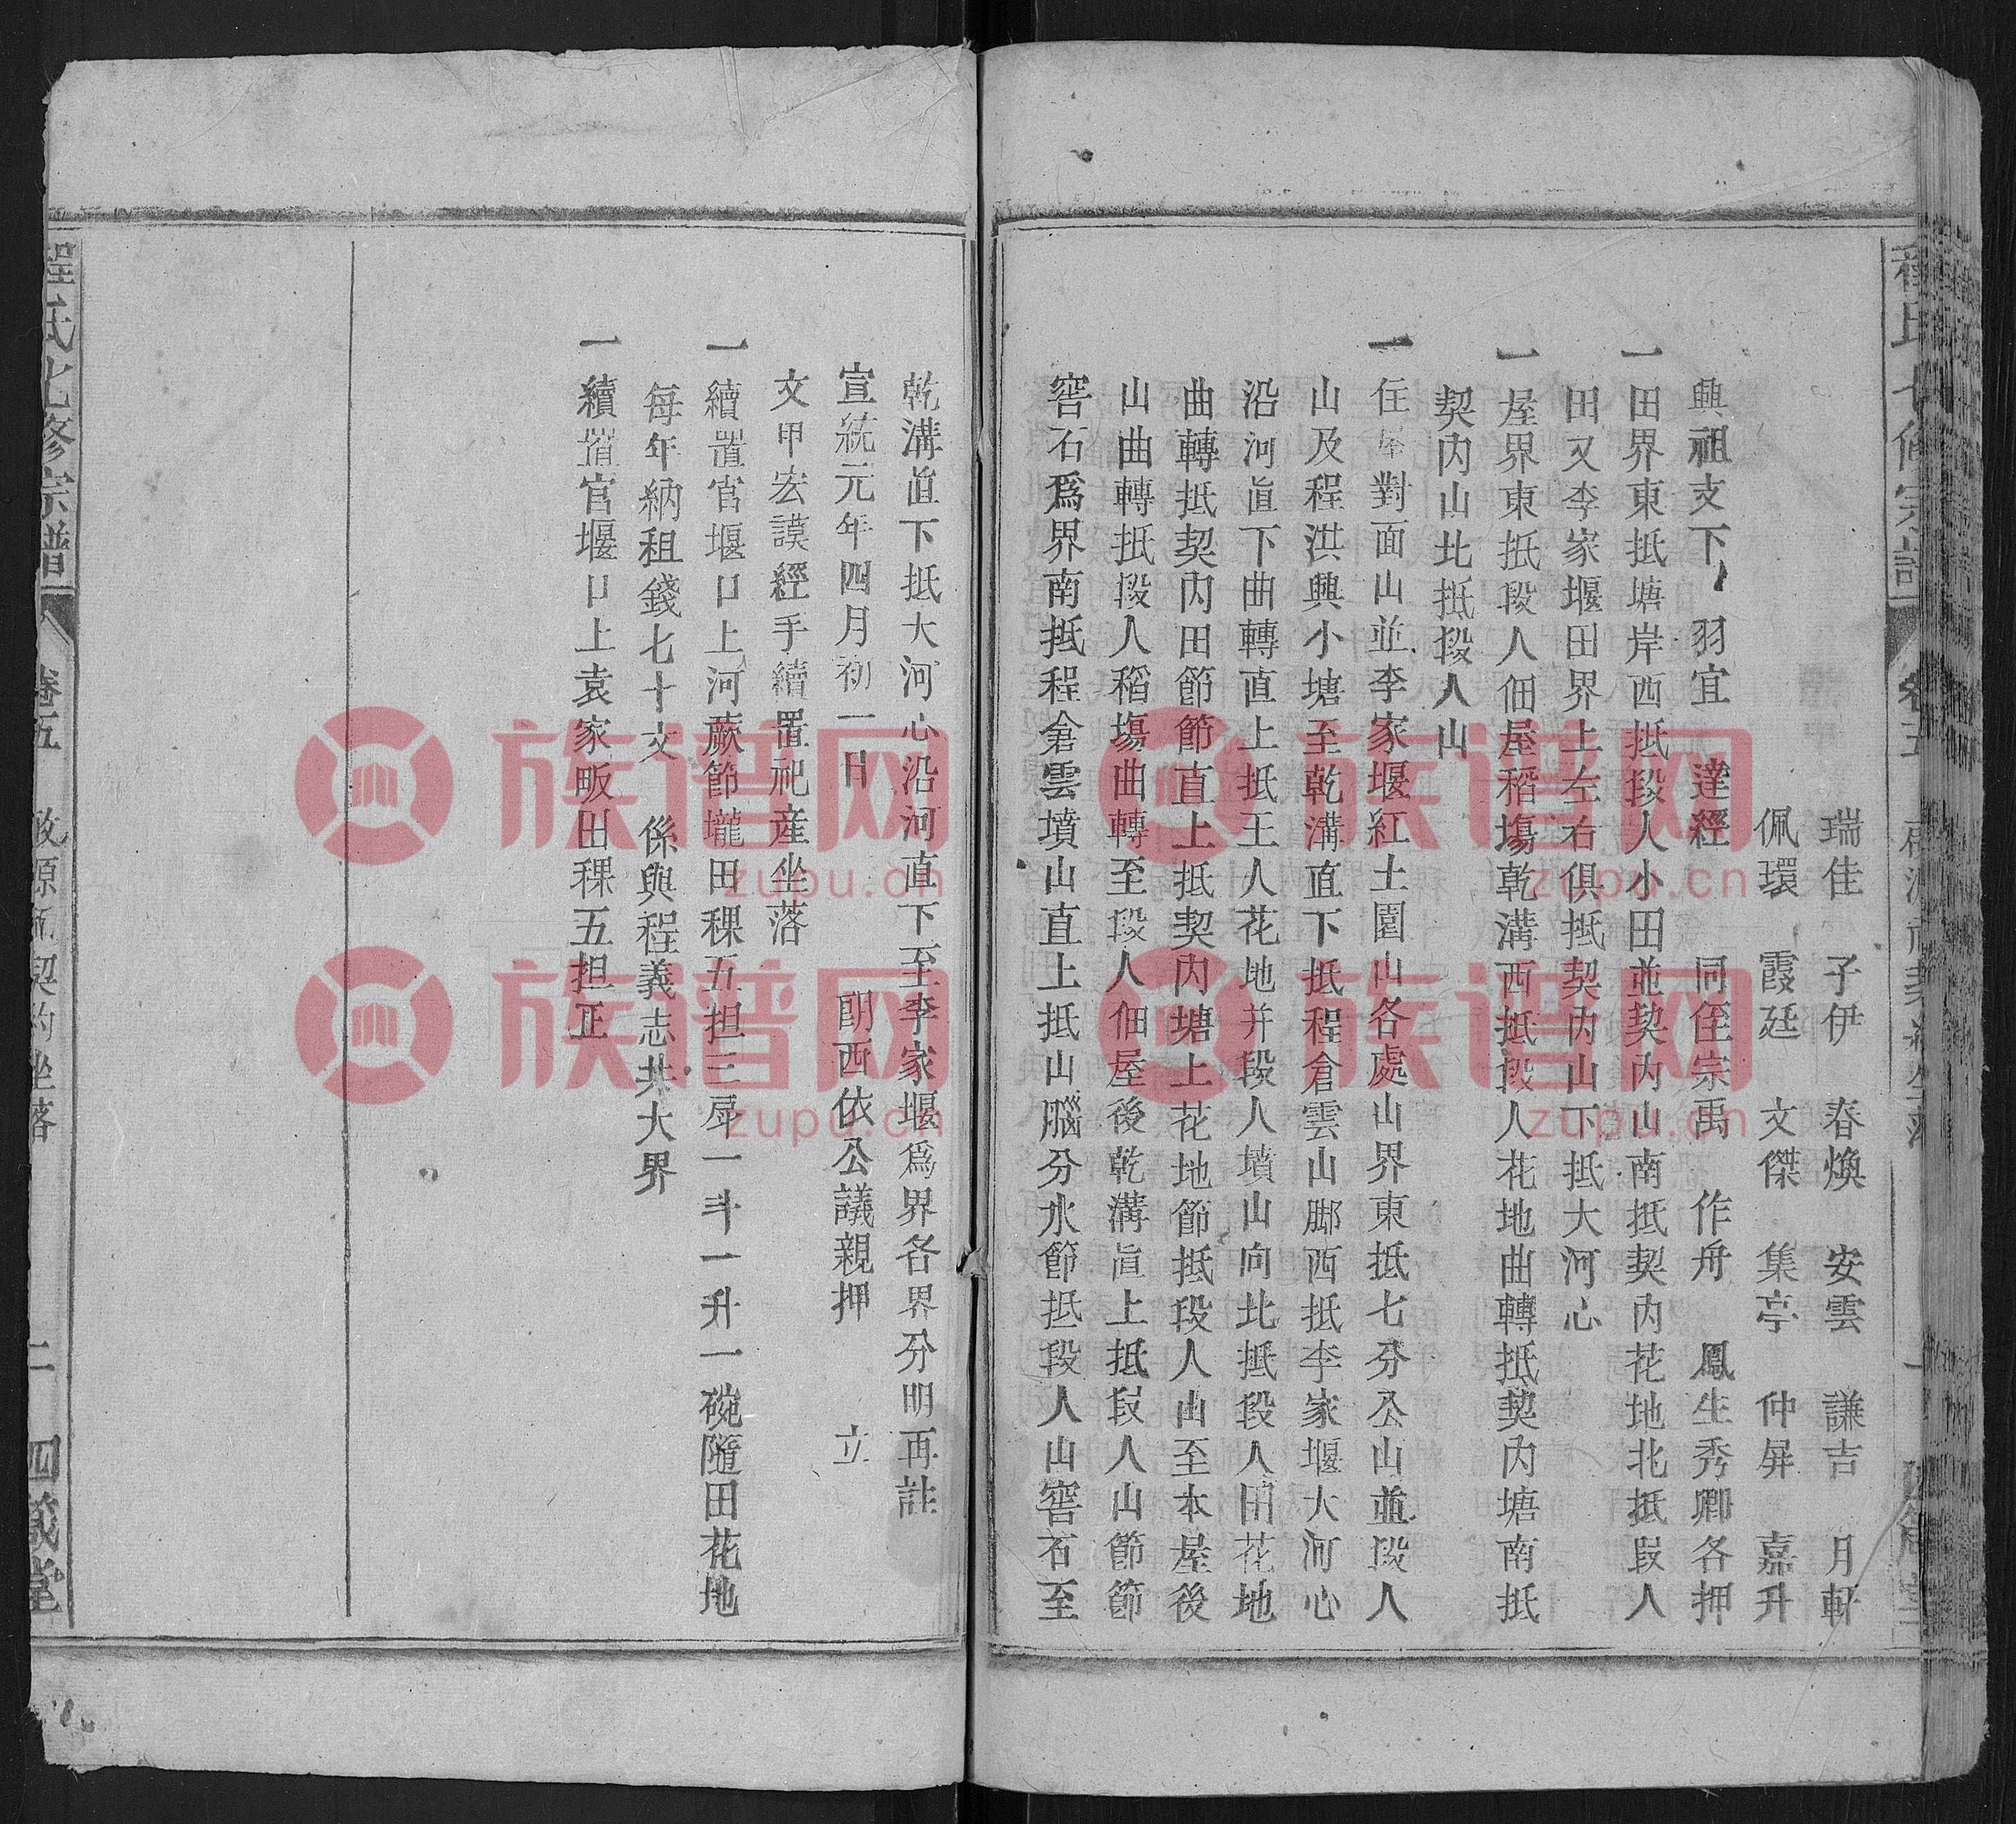 瑞佳　子伊　春煥　安雲　謙吉　月軒
佩環　霞廷　文傑　集亭　仲屏　嘉升
興祖支下　羽宜　達經　同侄宗禹　作舟　鳳生秀卿各押
一田界東抵塘岸西抵段人小田並契內山南抵契內花地北抵段人
田又李家堰田界上左右俱抵契內山下抵大河心
一屋界東抵段人佃屋稻塲乾溝西抵段人花地曲轉抵契內塘南抵
契內山北抵段人山
一住屋對面山並李家堰紅土園山各處山界東抵七分公山並段人
山及程洪興小塘至乾溝直下抵程倉雲山脚西抵李家堰大河心
沿河直下曲轉直上抵王人花地并段人墳山向北抵段人田花地
曲轉抵契內田節節直上抵契內塘上花地節抵段人山至本屋後
山曲轉抵段人稻塲曲轉至段人佃屋後乾溝直上抵段人山節節
窖石爲界南抵程倉雲墳山直上抵山腦分水節抵段人山窖石至
乾溝直下抵大河心沿河直下至李家堰爲界各界分明再註
宣統元年四月初一日　朗西依公議親押　立
文甲宏謨經手續置祀産坐落
一續置官堰口上河蕨節壠田稞五担三一斗一升一碗隨田花地
每年納租錢七十文　係與程義志共大界
一續置官堰口上袁家畈田稞五担正
程氏七修宗譜　卷五　契約坐落　二　四箴堂
族谱网
zupu.cn
族谱网
zupu.cn
族谱网
zupu.cn
族谱网
zupu.cn